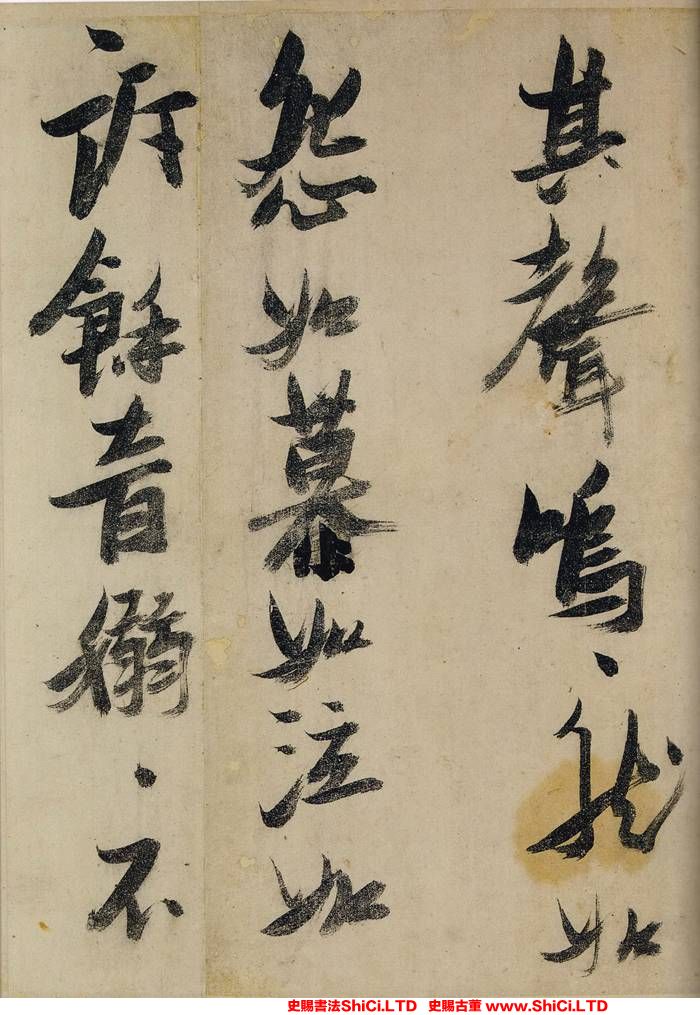 其聲嗚、然如
怨如慕如泣如
訴餘音嫋、不
史賜書法ShiCi.LTD 史賜古董 www.ShiCi.LTD